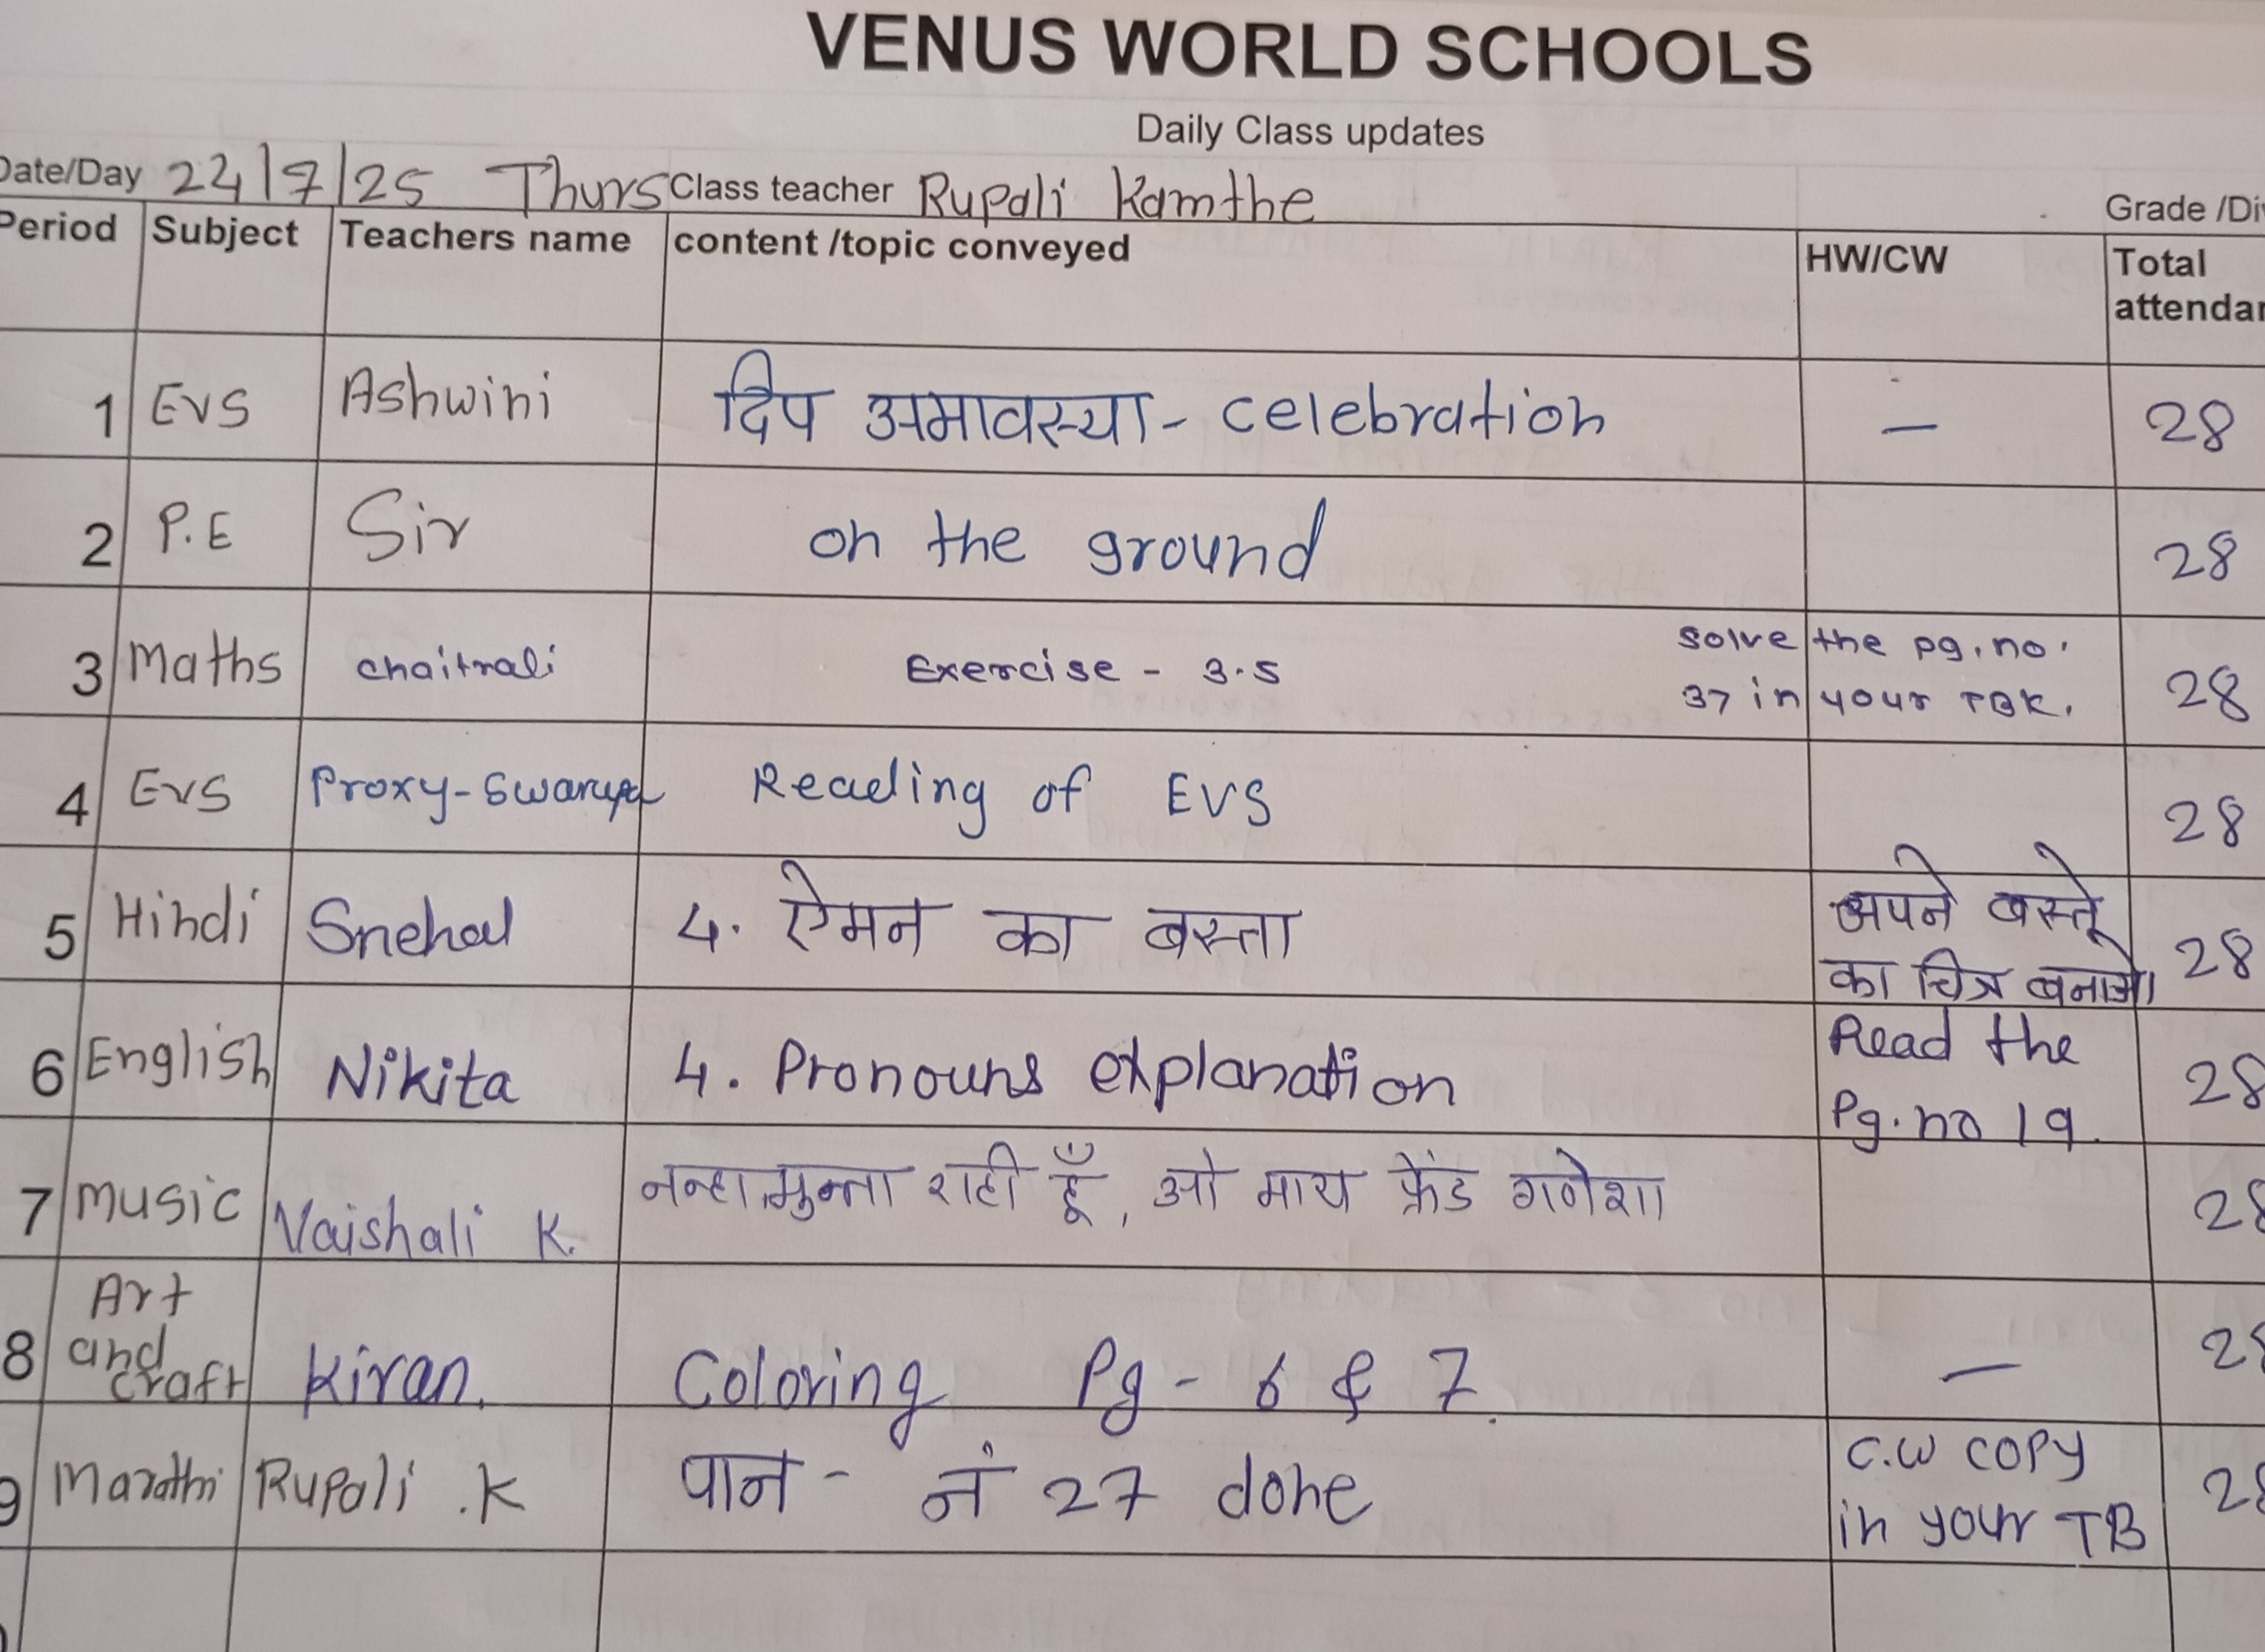 VENUS WORLD SCHOOLS
Daily Class updates
Date/Day 24/7/25 Thurs Class teacher Rupali Kamthe Grade /Div
Period Subject Teachers name content /topic conveyed HW/CW Total
attendan
1 EVS Ashwini दिप अमावस्या - celebration - 28
2 P.E Sir on the ground 28
3 Maths chaitrali Exercise - 3.5 solve the pg. no.
37 in your TBK. 28
4 EVS Proxy-Swarupa Reading of EVS 28
5 Hindi Snehal 4. ऐमन का बस्ता अपने बस्ते
का चित्र बनाओ। 28
6 English Nikita 4. Pronouns explanation Read the
Pg. no 19. 28
7 Music Vaishali K. नन्हा मुन्ना राही हूँ, ओ माय फ्रेंड गणेशा 28
8 Art
and
craft Kiran. Coloring Pg - 6 & 7. - 28
9 Marathi Rupali .K पान - नं 27 done C.W copy
in your TB 28